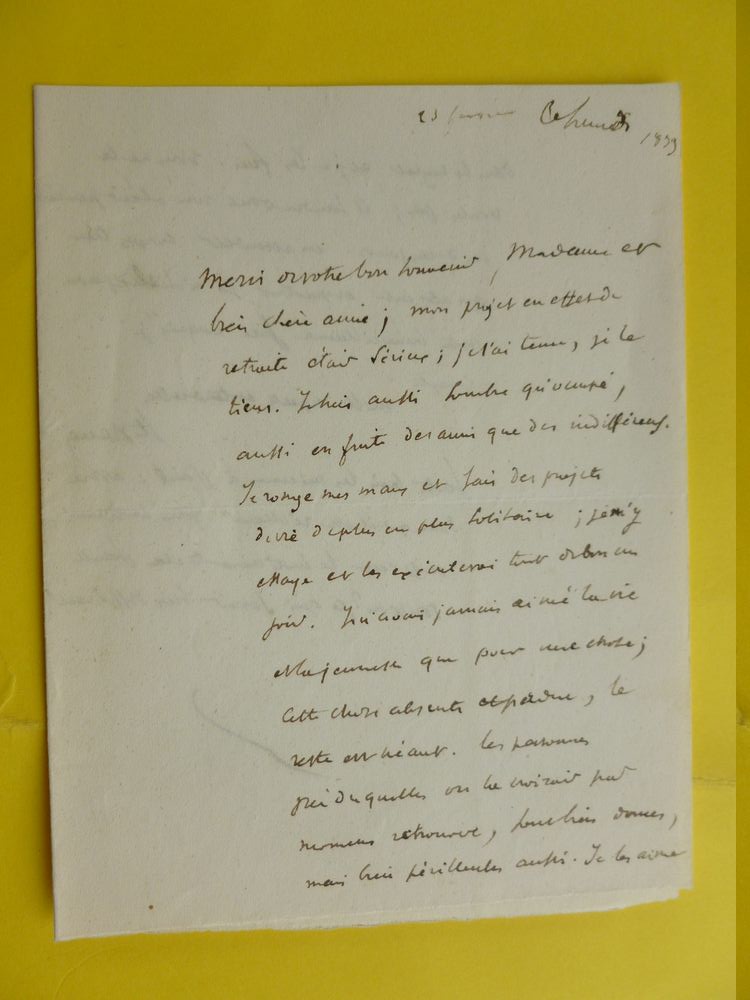 23 janvier Ce lundi
1839
Merci de votre bon souvenir, Madame et
bien chère amie ; mon projet en effet de
retraite était sérieux ; je l'ai tenu, je le
tiens. Je suis aussi sombre qu'occupé,
aussi en fuite des amis que des indifférens.
Je ronge mes maux et fais des projets
de vie de plus en plus solitaire ; j'en
essaye et les exécuterai tout de bon un
jour. Je n'avais jamais aimé la vie
et la jeunesse que pour une chose ;
cette chose absente et perdue, le
reste est néant. Les personnes
près desquelles on la croirait par
momens retrouver, sont bien douces,
mais bien périlleuses aussi. Je les aime